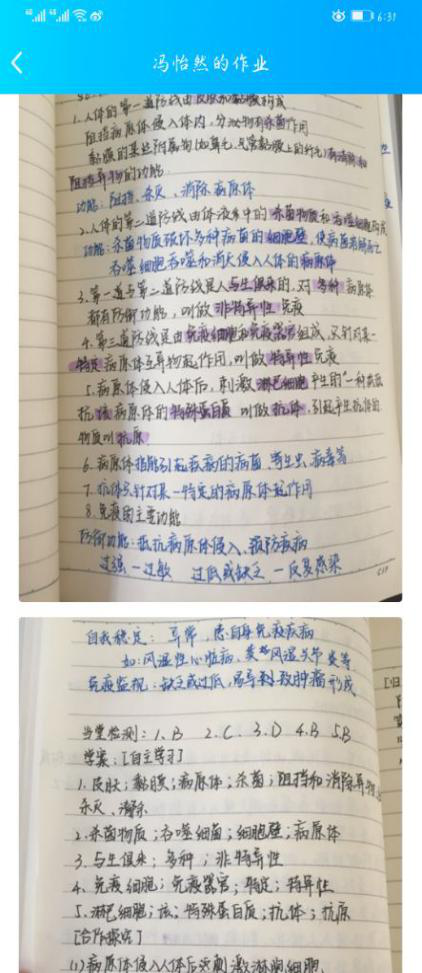 6:31
冯怡然的作业
1.人体的第一道防线由皮肤和黏膜构成
阻挡病原体侵入人体内,分泌物有杀菌作用
黏膜的某些附属物(如鼻毛,气管黏膜上的纤毛)有清除和
阻挡异物的功能
功能:阻挡、杀灭、清除病原体
2.人体的第二道防线由体液中的杀菌物质和吞噬细胞构成
功能:杀菌物质破坏多种病菌的细胞壁,使病菌溶解死亡
吞噬细胞吞噬和消灭侵入人体的病原体
3.第一道与第二道防线是人与生俱来的,对多种病原体
都有防御功能,叫做非特异性免疫
4.第三道防线是由免疫细胞和免疫器官组成,只针对某一
特定病原体或异物起作用,叫做特异性免疫
5.病原体侵入人体后,刺激淋巴细胞产生的一种
抗该病原体的特殊蛋白质叫做抗体,引起产生抗体的
物质叫抗原
6.病原体指能引起疾病的病菌、寄生虫、病毒等
7.抗体只针对某一特定的病原体起作用
8.免疫的主要功能
防御功能:抵抗病原体侵入、预防疾病
过强—过敏 过低或缺乏—反复感染
自我稳定:异常,患自身免疫疾病
如:风湿性心脏病,类风湿关节炎等
免疫监视:缺乏或过低,易导致肿瘤形成
当堂检测:1.B 2.C 3.D 4.B 5.B
学案:[自主学习]
1.皮肤;黏膜;病原体;杀菌;阻挡和清除异物;
杀灭、清除
2.杀菌物质;吞噬细菌;细胞壁;病原体
3.与生俱来;多种;非特异性
4.免疫细胞;免疫器官;特定;特异性
5.淋巴细胞;该;特殊蛋白质;抗体;抗原
[合作探究]
(1)病原体侵入人体后刺激淋巴细胞,